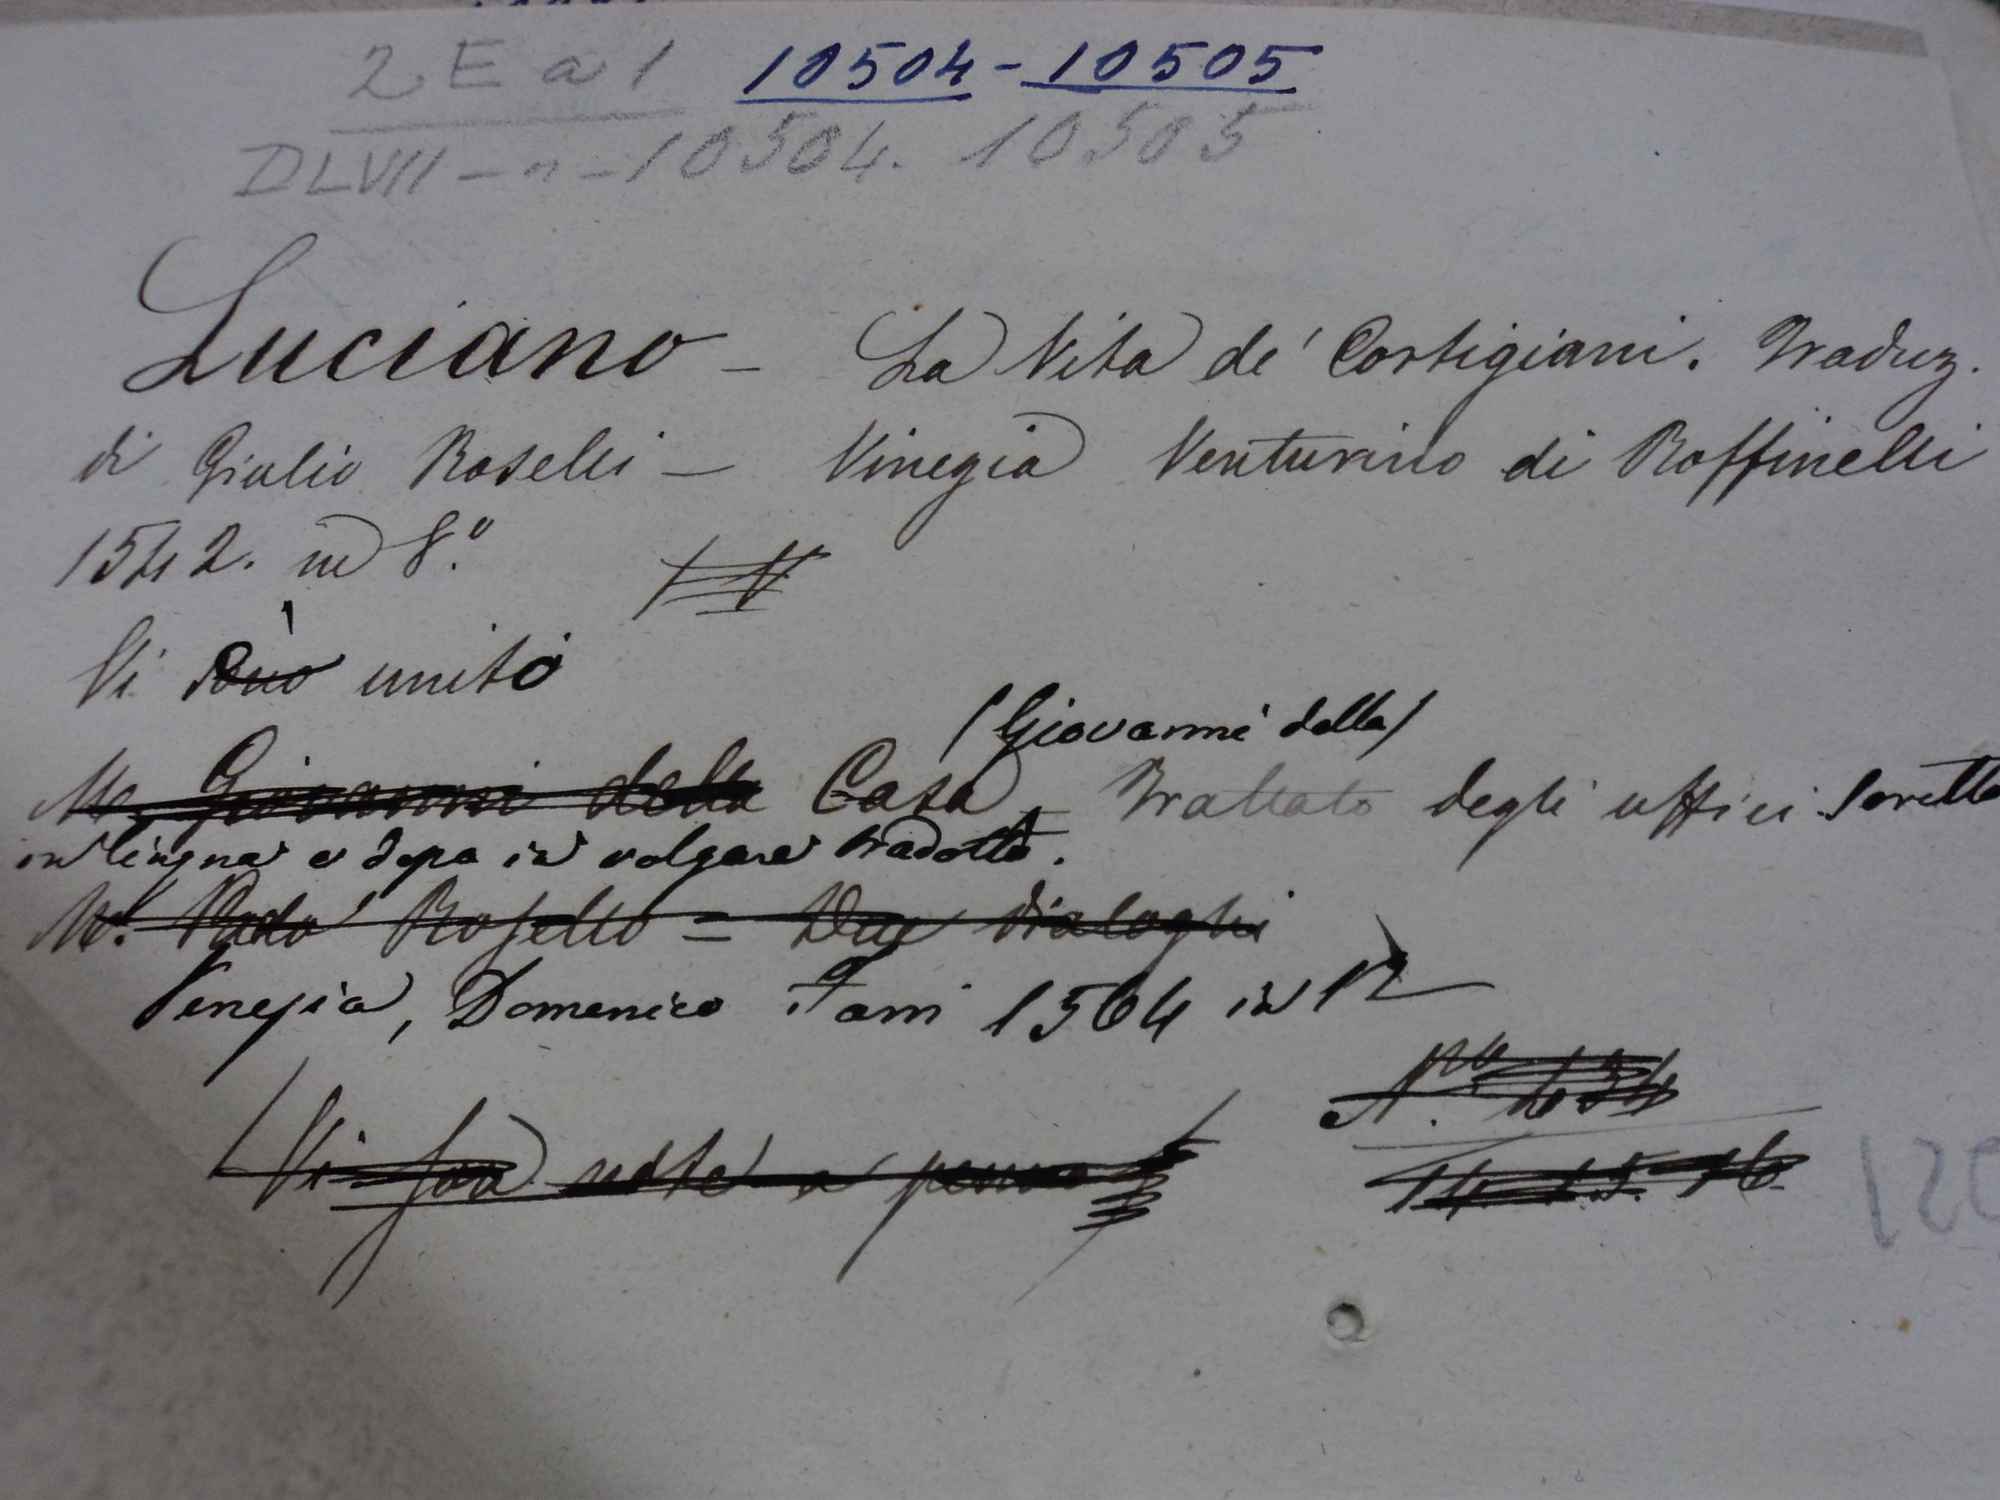 2 E a 1 10504-10505
DLVII - n - 10504. 10505
Luciano - La Vita de' Cortigiani. Traduz.
di Giulio Roselli - Vinegia Venturino di Roffinelli
1542. in 8.º
Vi è unito
M. Giovanni della Casa (Giovanni della) - Trattato degli uffici. Scritto
in lingua e dopo in volgare tradotto.
M. Rosello = Due dialoghi
Venezia, Domenico Farri 1564 in 12
Vi son note a penna
14 15. 16